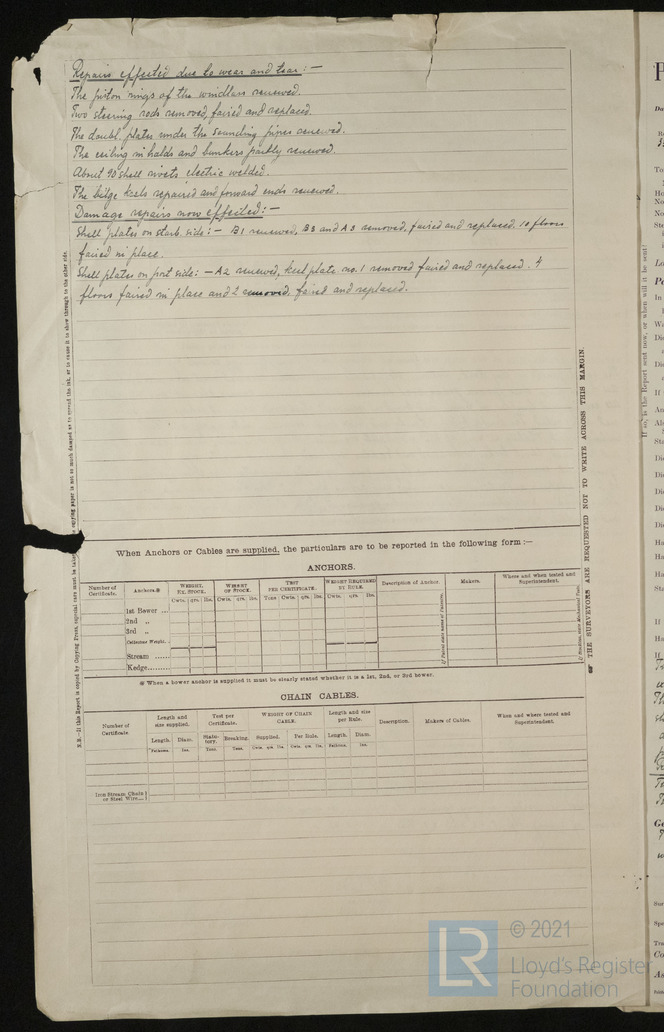 Repairs effected due to wear and tear :—
The piston rings of the windlass renewed.
Two steering rods removed, faired and replaced.
The doubl. plates under the sounding pipes renewed.
The ceiling in holds and bunkers partly renewed.
About 90 shell rivets electric welded.
The bilge keels repaired and forward ends renewed.
Damage repairs now effected :—
Shell plates on starb. side :— B1 renewed, B3 and A3 removed, faired and replaced. 10 floors
faired in place.
Shell plates on port side :— A2 renewed, keel plate no. 1 removed faired and replaced. 4
floors faired in place and 2 removed, faired and replaced.
THE SURVEYORS ARE REQUESTED NOT TO WRITE ACROSS THIS MARGIN.
When Anchors or Cables are supplied, the particulars are to be reported in the following form :—
ANCHORS.
Number of Certificate. Anchors.* WEIGHT, EX. STOCK. WEIGHT OF STOCK. TEST PER CERTIFICATE. WEIGHT REQUIRED BY RULE. Description of Anchor. Makers. Where and when tested and Superintendent.
Cwts. qrs. lbs. Cwts. qrs. lbs. Tons. Cwts. qrs. lbs. Cwts. qrs. lbs.
1st Bower ...
2nd „
3rd „
Collective Weight.
Stream ......
Kedge.........
* When a bower anchor is supplied it must be clearly stated whether it is a 1st, 2nd, or 3rd bower.
CHAIN CABLES.
Number of Certificate. Length and size supplied. Test per Certificate. WEIGHT OF CHAIN CABLE. Length and size per Rule. Description. Makers of Cables. When and where tested and Superintendent.
Length. Diam. Statutory. Breaking. Supplied. Per Rule. Length. Diam.
Fathoms. Ins. Tons. Tons. Cwts. qrs. lbs. Cwts. qrs. lbs. Fathoms. Ins.
Iron Stream Chain
or Steel Wire
LR
© 2021
Lloyd's Register
Foundation